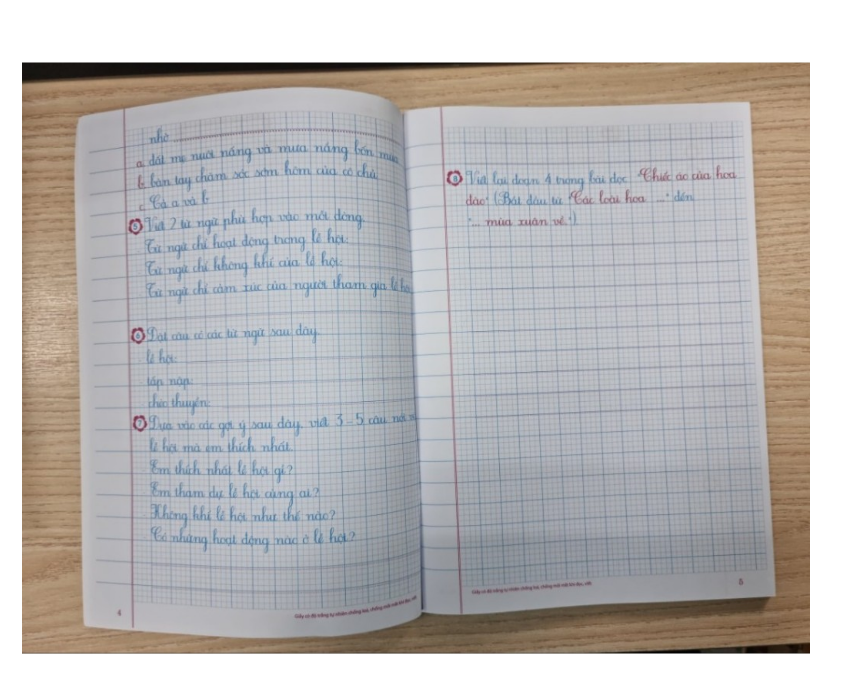 nhờ
a. đất mẹ nuôi nấng và mưa nắng bốn mùa
b. bàn tay chăm sóc sớm hôm của cô chú
c. Cả a và b
5 Viết 2 từ ngữ phù hợp vào mỗi dòng.
Từ ngữ chỉ hoạt động trong lễ hội:
Từ ngữ chỉ không khí của lễ hội:
Từ ngữ chỉ cảm xúc của người tham gia lễ hội
6 Đặt câu có các từ ngữ sau đây.
lễ hội:
tấp nập:
chiếc thuyền:
7 Dựa vào các gợi ý sau đây, viết 3 - 5 câu nói
lễ hội mà em thích nhất.
Em thích nhất lễ hội gì?
Em tham dự lễ hội cùng ai?
Không khí lễ hội như thế nào?
Có những hoạt động nào ở lễ hội?
4
Giấy có độ trắng tự nhiên chống lóa, chống mỏi mắt khi đọc, viết.
8 Viết lại đoạn 4 trong bài đọc "Chiếc áo của hoa
đào" (Bắt đầu từ "Các loài hoa ..." đến
"... mùa xuân về.")
Giấy có độ trắng tự nhiên chống lóa, chống mỏi mắt khi đọc, viết.
5